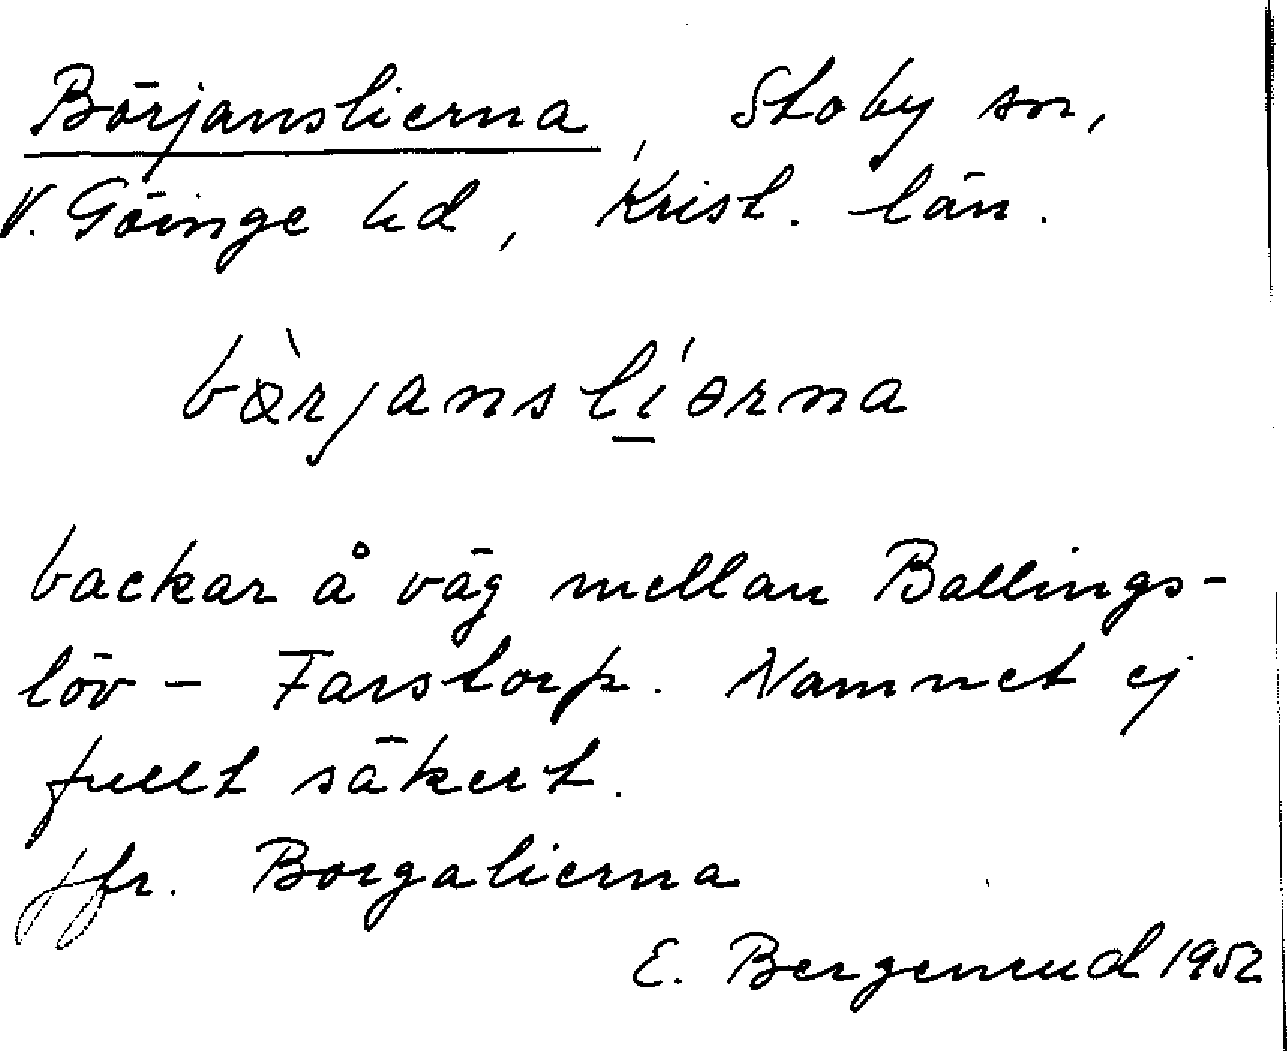 Börjanslierna, Stoby sn,
V. Göinge hd, Krist. län.
bœ̀rjanslíərna
backar å väg mellan Ballings-
löv - Farstorp. Namnet ej
fullt säkert.
jfr. Borgalierna
E. Bergenrud 1952